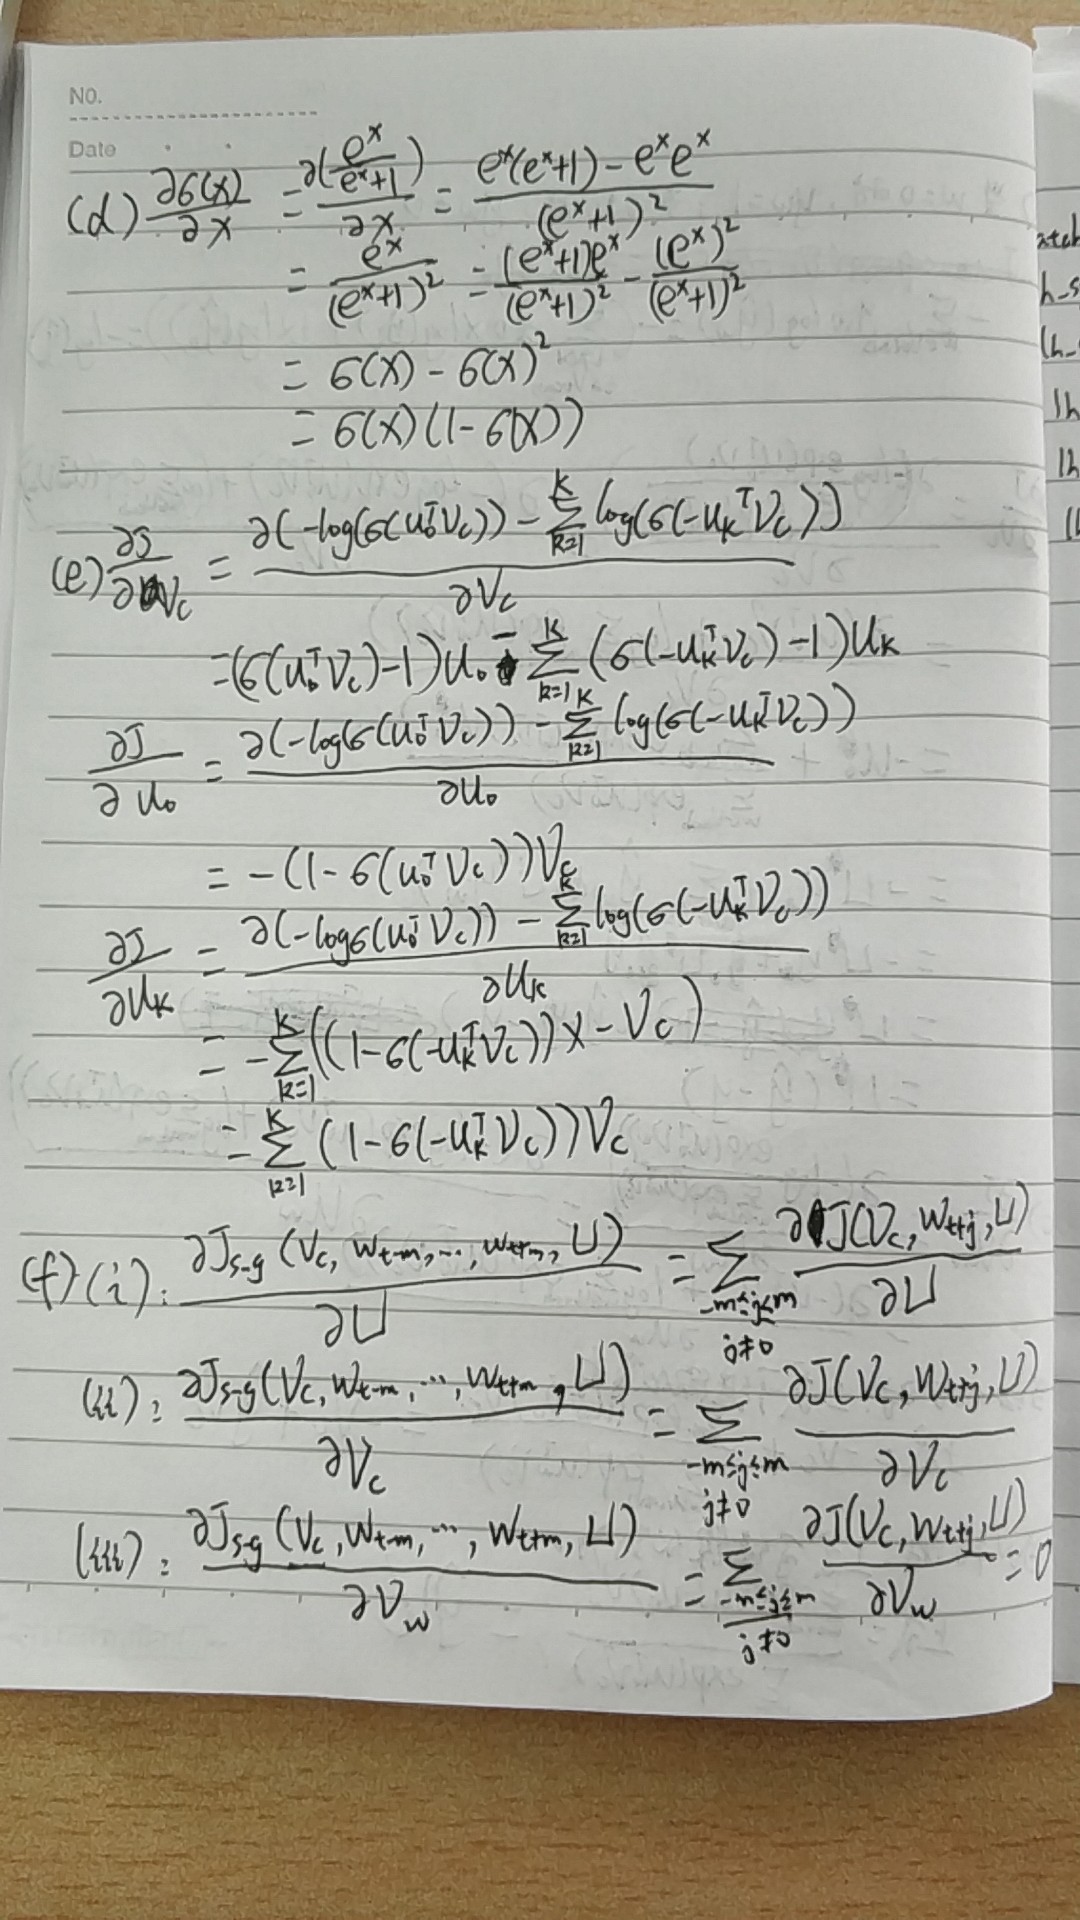 NO.
Date
(d) ∂σ(x)/∂x = ∂(e^x/(e^x+1))/∂x = (e^x(e^x+1) - e^x e^x)/(e^x+1)^2
= e^x/(e^x+1)^2 = (e^x+1)e^x/(e^x+1)^2 - (e^x)^2/(e^x+1)^2
= σ(x) - σ(x)^2
= σ(x)(1-σ(x))
(e) ∂J/∂V_c = ∂(-log(σ(u_o^T V_c)) - Σ_{k=1}^K log(σ(-u_k^T V_c)))/∂V_c
= (σ(u_o^T V_c)-1)u_o - Σ_{k=1}^K (σ(-u_k^T V_c)-1)u_k
∂J/∂u_o = ∂(-log(σ(u_o^T V_c)) - Σ_{k=1}^K log(σ(-u_k^T V_c)))/∂u_o
= -(1-σ(u_o^T V_c))V_c
∂J/∂u_k = ∂(-logσ(u_o^T V_c)) - Σ_{k=1}^K log(σ(-u_k^T V_c))/∂u_k
= -Σ_{k=1}^K ((1-σ(-u_k^T V_c))×-V_c)
= Σ_{k=1}^K (1-σ(-u_k^T V_c))V_c
(f)(i): ∂J_{s-g}(V_c, w_{t-m}, …, w_{t+m}, U)/∂U = Σ_{-m≤j≤m, j≠0} ∂J(V_c, w_{t+j}, U)/∂U
(ii): ∂J_{s-g}(V_c, w_{t-m}, …, w_{t+m}, U)/∂V_c = Σ_{-m≤j≤m, j≠0} ∂J(V_c, w_{t+j}, U)/∂V_c
(iii): ∂J_{s-g}(V_c, w_{t-m}, …, w_{t+m}, U)/∂V_w = Σ_{-m≤j≤m, j≠0} ∂J(V_c, w_{t+j}, U)/∂V_w = 0